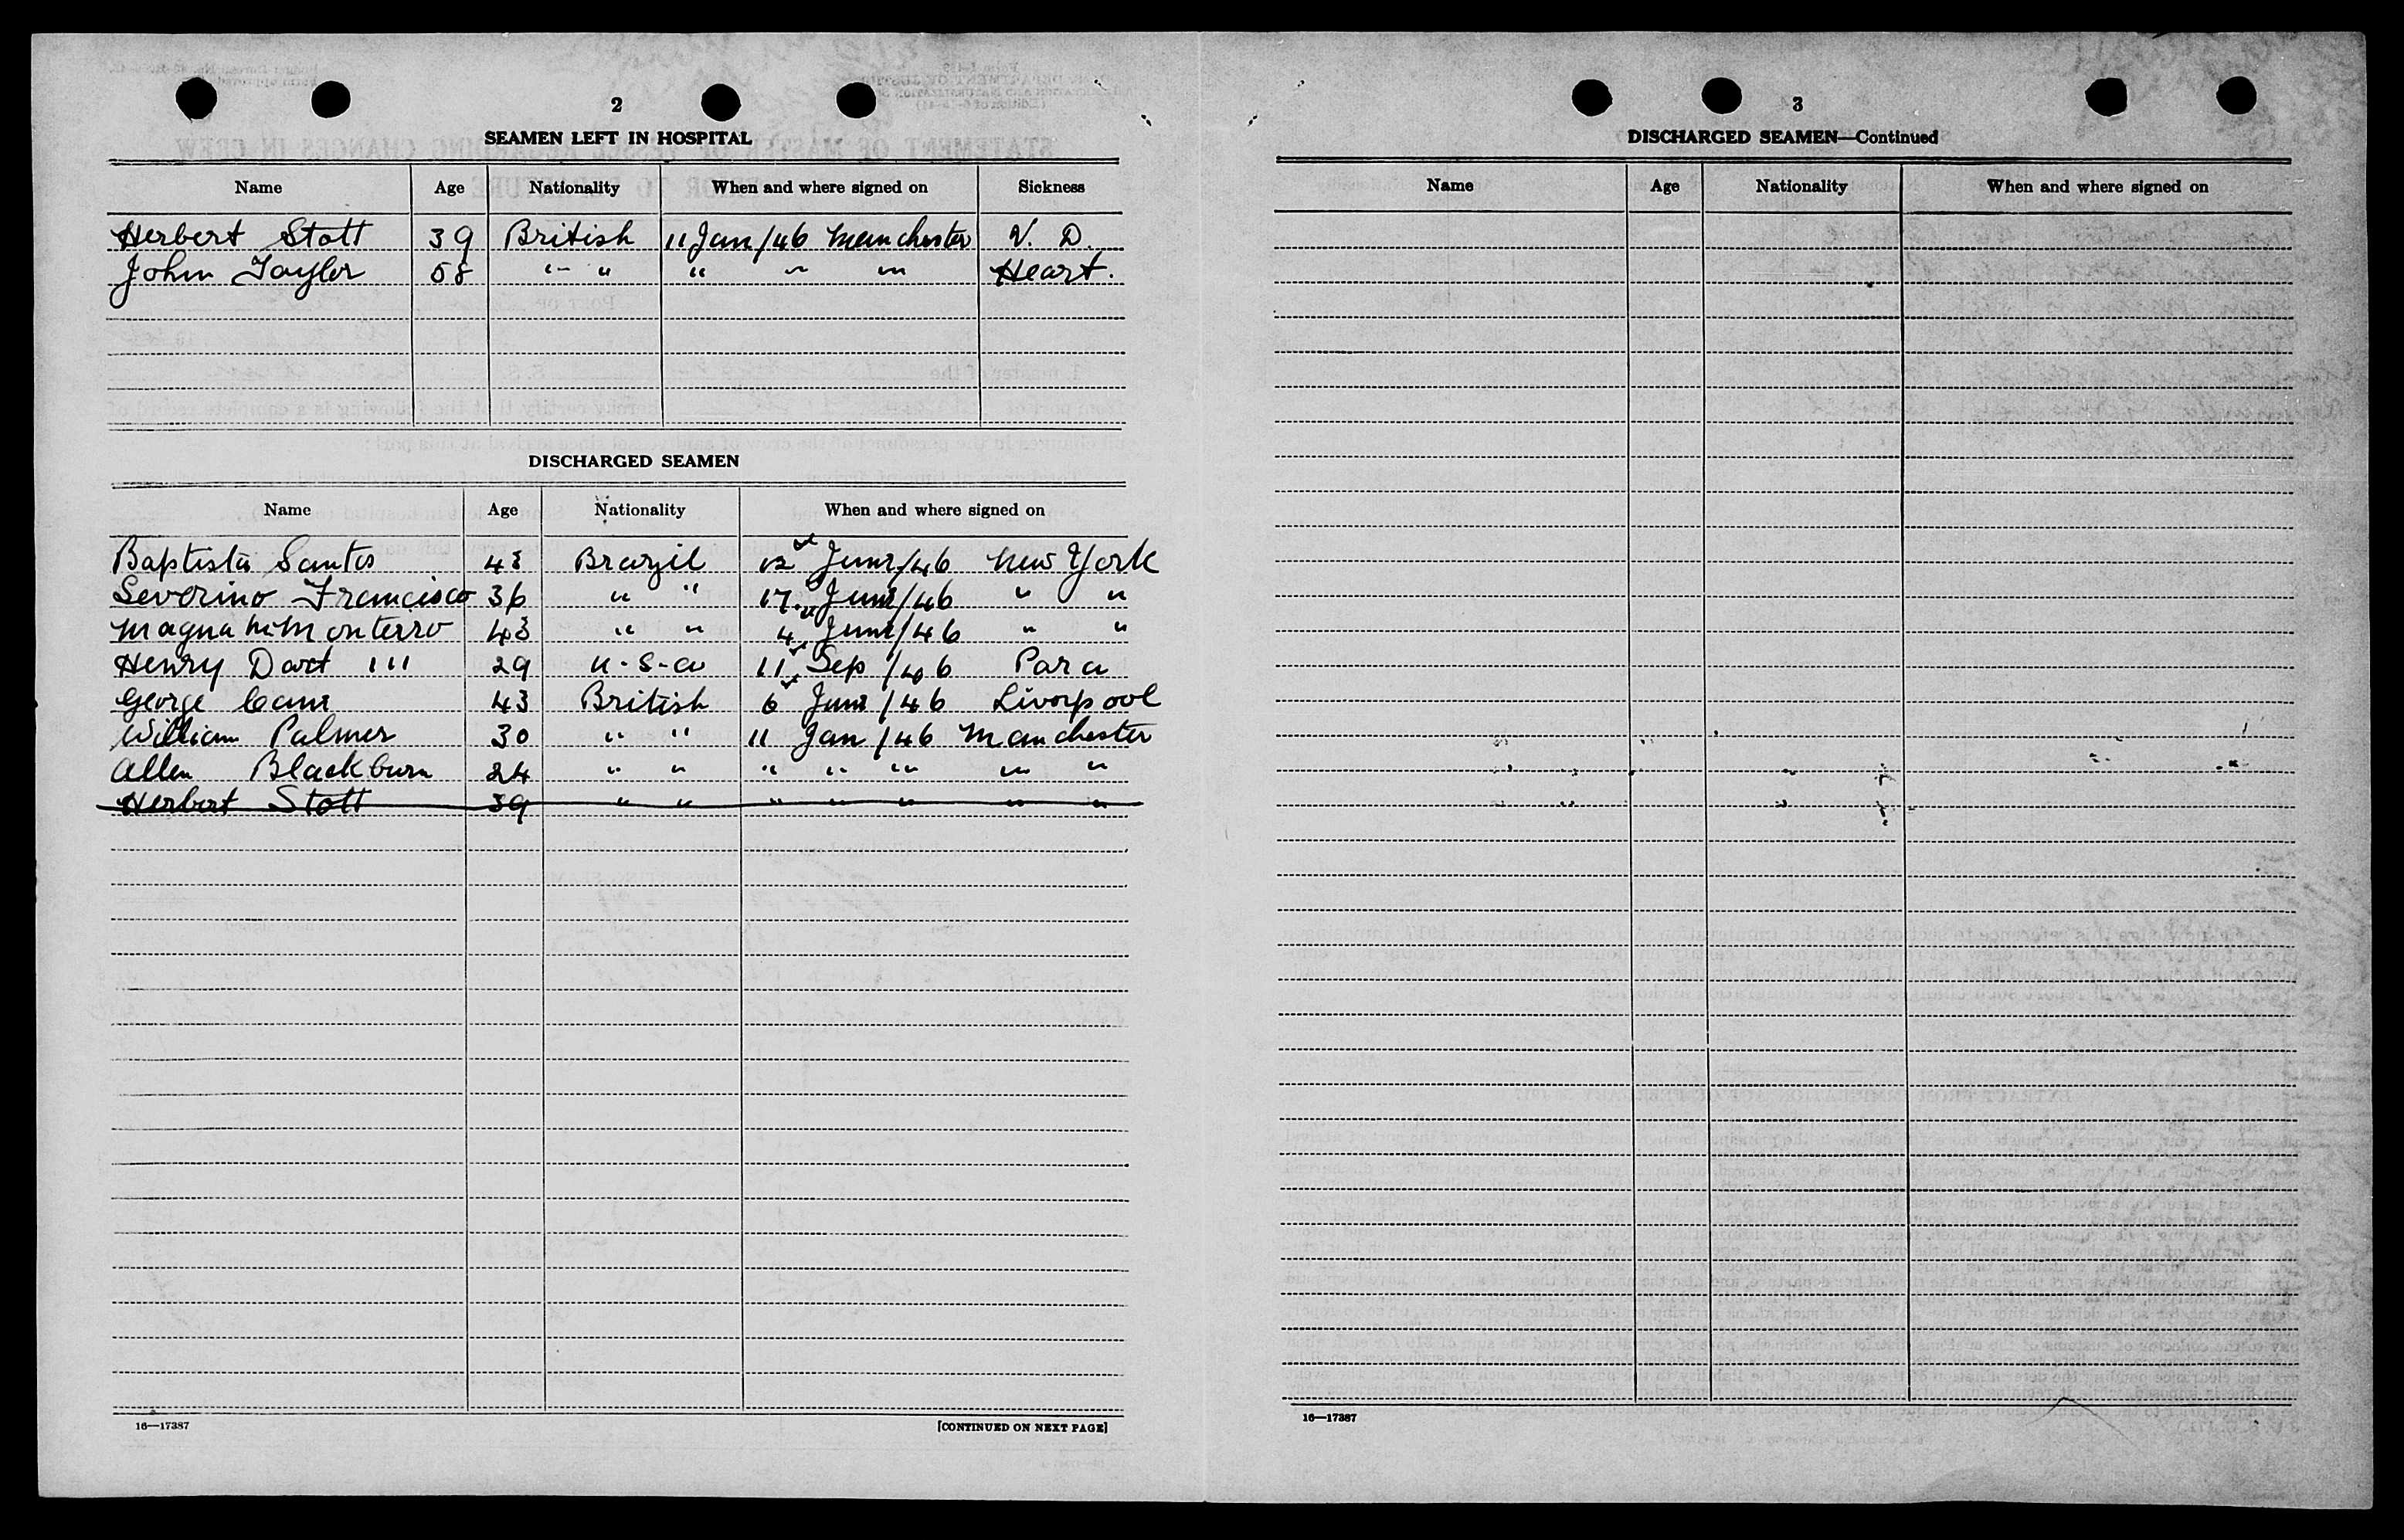 2
SEAMEN LEFT IN HOSPITAL
Name Age Nationality When and where signed on Sickness
Herbert Stott 39 British 11 Jan/46 Manchester V. D.
John Tayler 58 " " " " " Heart.
DISCHARGED SEAMEN
Name Age Nationality When and where signed on
Baptista Santos 48 Brazil June/46 New York
Severino Francisco 36 " " 17 June/46 " "
43 " " 4 June/46 " "
Henry Dart 29 U-S-A 11 Sep/46 Para
George 43 British 6 June/46 Liverpool
William Palmer 30 " " 11 Jan/46 Manchester
Allen Blackburn 24 " " " " " " "
Herbert Stott 39 " " " " " " "
16—17387 [CONTINUED ON NEXT PAGE]
3
DISCHARGED SEAMEN—Continued
Name Age Nationality When and where signed on
16—17387